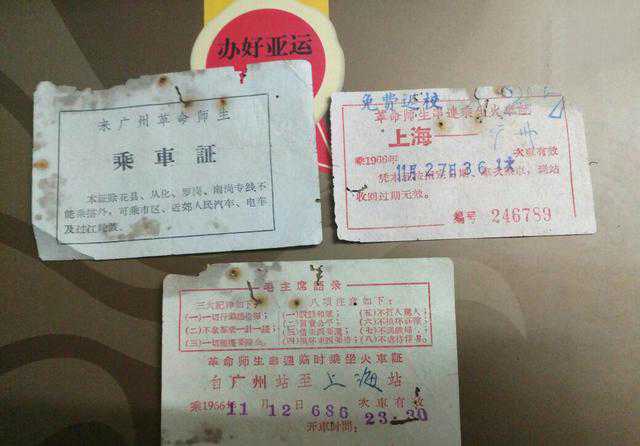 办好亚运
来广州革命师生
乘車証
本証除花县、从化、罗岗、南岗专线不
能乘搭外，可乘市区、近郊人民汽车、电车
及过江轮渡。
免费返校
革命师生串連乘坐火車証
上海 广州
乘1966年 11月27日361次 次車有效
凭本証 車，到站
收到过期无效。
編号 246789
毛主席語录
三大紀律如下： 八項注意如下：
(一)一切行动听指揮； (一)說話和气； (五)不打人罵人；
(二)不拿羣众一針一綫； (二)買賣公平； (六)不損坏庄稼；
(三)一切繳获要归公。 (三)借东西要还； (七)不調戏妇女；
(四)損坏东西要赔； (八)不虐待俘虏。
革命师生串連临时乘坐火車証
自广州站至上海站
乘1966年 11月12 686次車有效 23-30
开車时間：